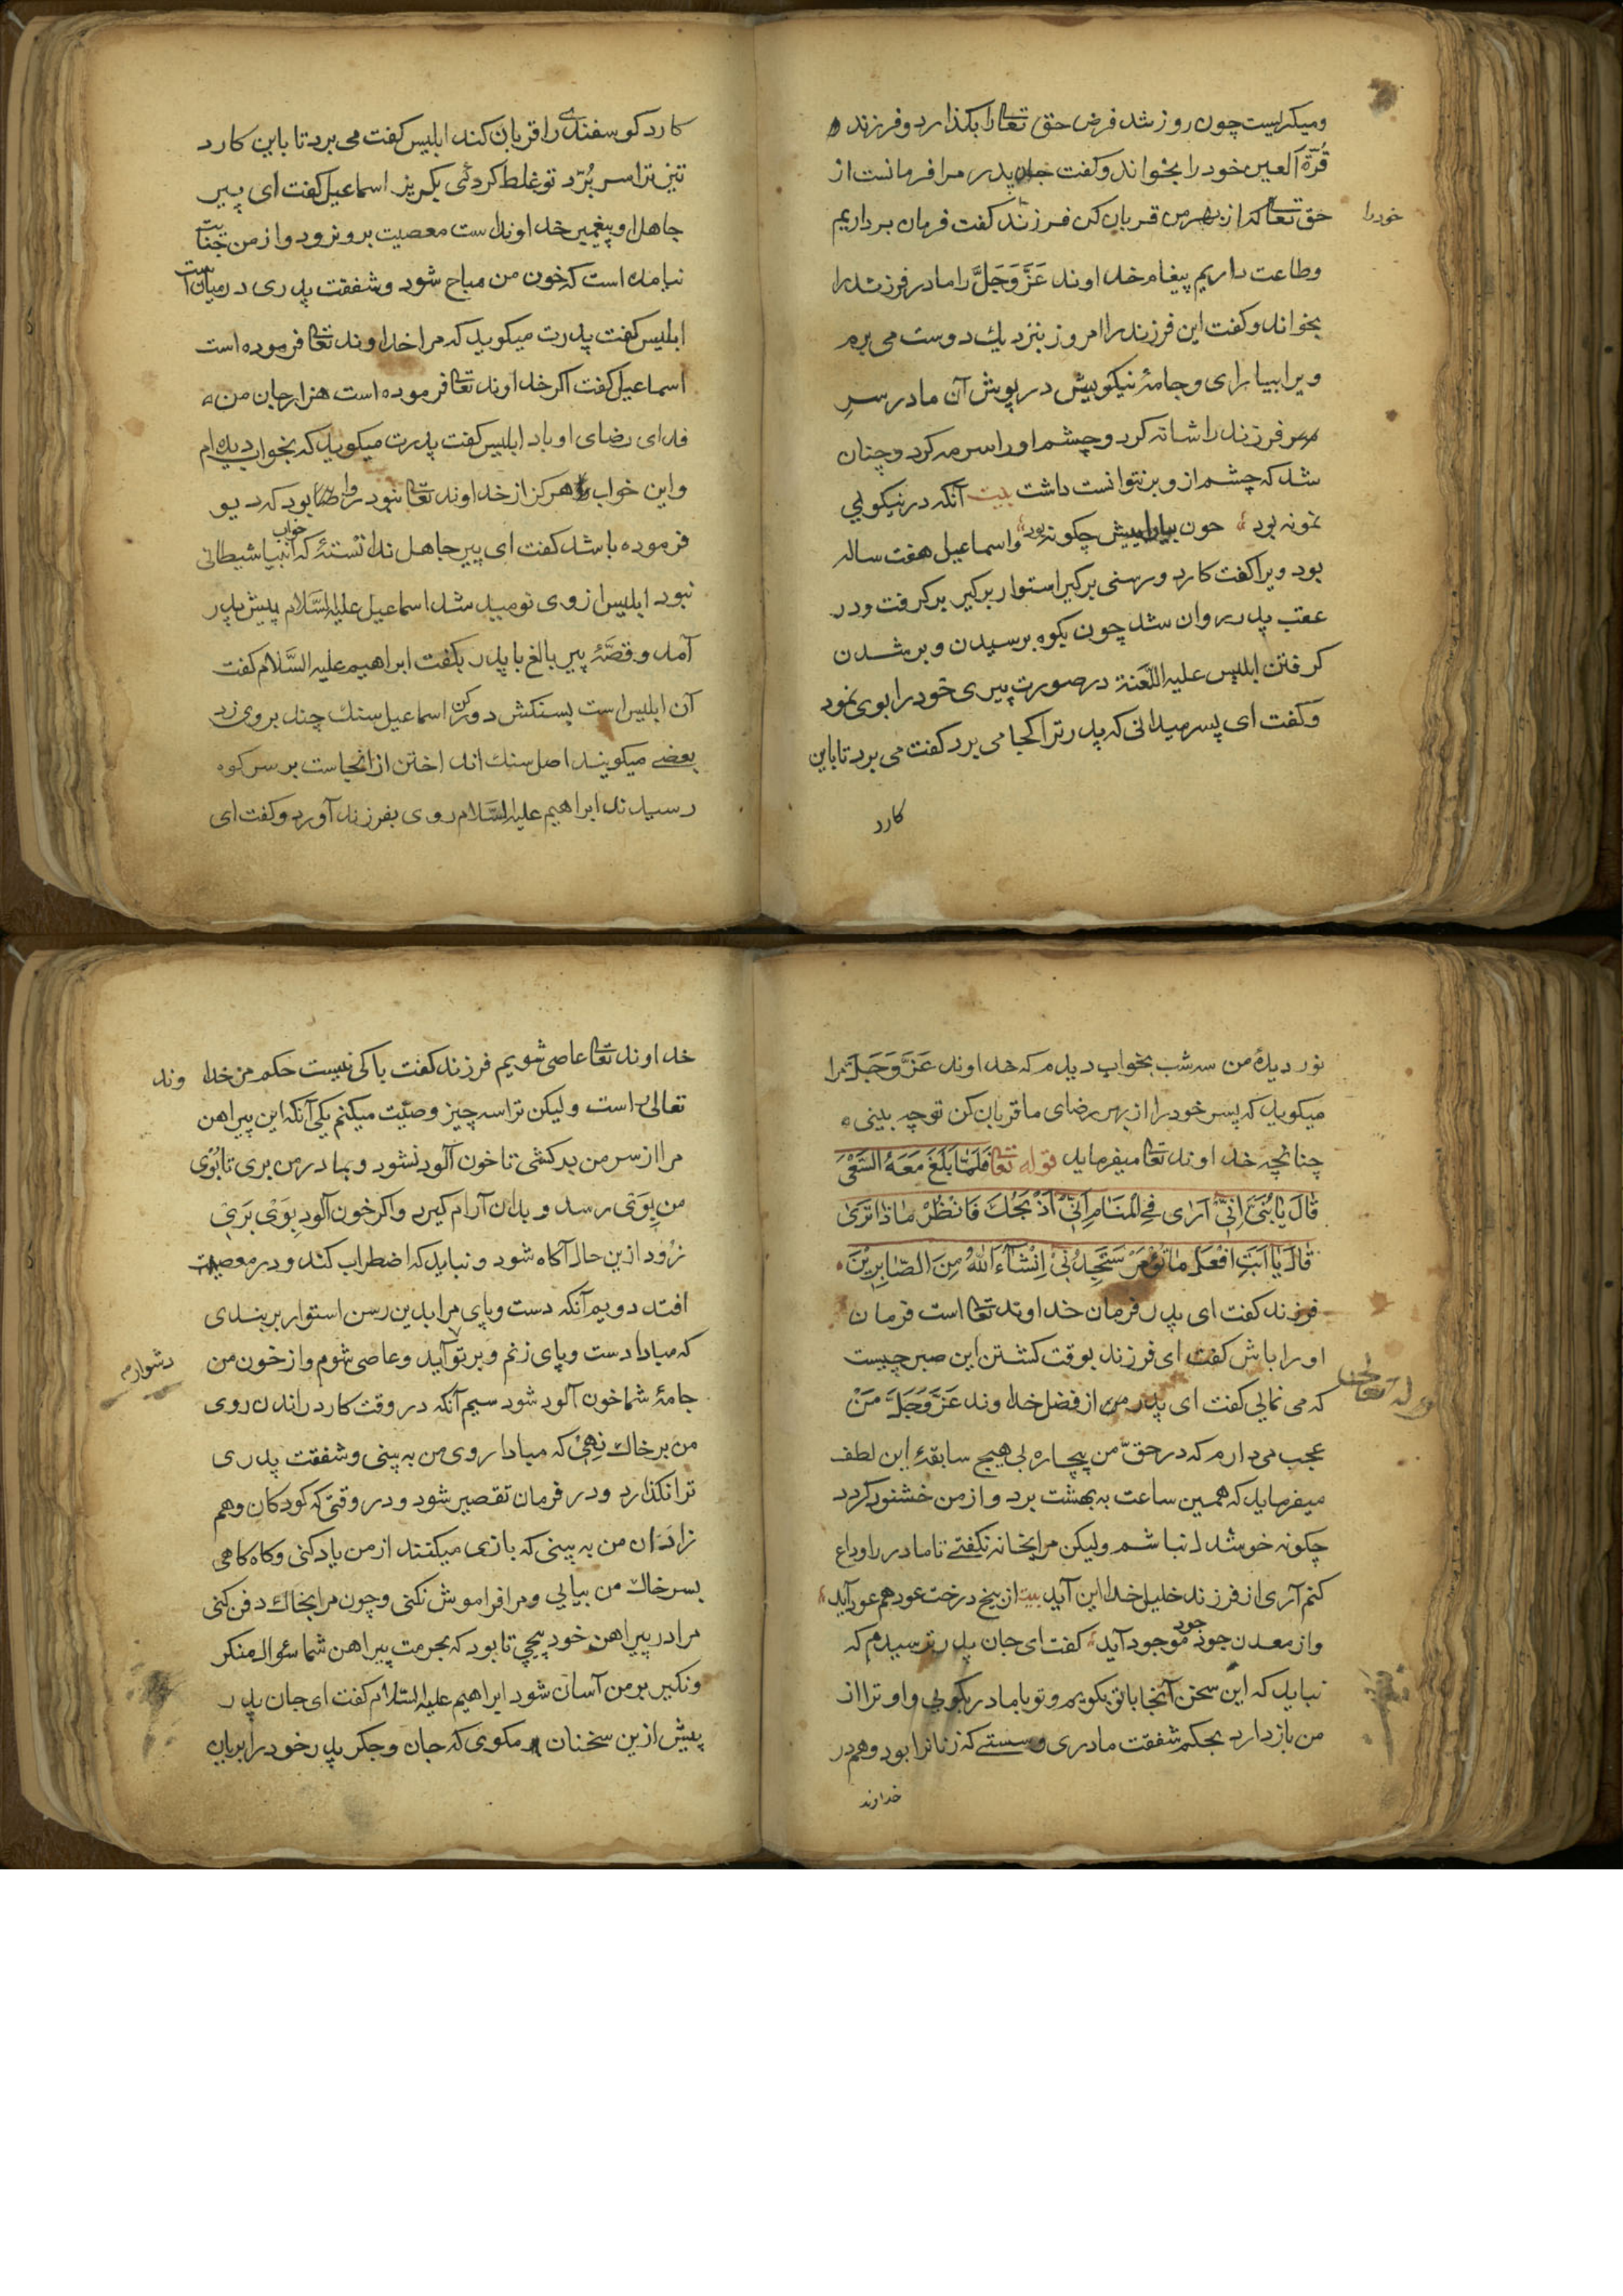 ومیکریست چون روز شد فرض حق تعالی را بکذارد و فرزند
قُرّة العین خود را بخواند و کفت جان پدر مرا فرمانست از
حق تعالی که از بهر من قربان کن فرزند کفت فرمان برداریم
خود را
وطاعت داریم پیغام خداوند عَزَّ وَجَلَّ را مادر فرزند را
بخواند و کفت این فرزند را امروز بنزدیك دوست می برم
ویرا بیارای و جامهٔ نیکو بیش در پوش آن مادر سرِ
فرزند را شانه کرد و چشم اورا سرمه کرد و چنان
شد که چشم ازو بر نتوانست داشت بیت آنکه در نیکویی
نمونه بود چون بیارایش چکونه بود واسماعیل هفت ساله
بود ویرا کفت کارد و رسنی برکیر استوار برکیر برکرفت و در
عقب پدر روان شد چون بکوه برسیدن و بر شدن
کرفتن ابلیس علیه اللّعنة در صورت پیری خود را بوی نمود
و کفت ای پسر میدانی که پدر ترا کجا می برد کفت می برد تا باین
کارد
کارد کوسفندی را قربان کند ابلیس کفت می برد تا باین کارد
تیز ترا سر بُرّد تو غلط کردئی بکریز اسماعیل کفت ای پیر
جاهل او پیغمبر خداوند است معصیت برو نرود و از من جنایت
نیامده است که خون من مباح شود و شفقت پدری در میان است
ابلیس کفت پدرت میکوید که مرا خداوند تعالی فرموده است
اسماعیل کفت اکر خداوند تعالی فرموده است هزار جان من
فدای رضای او باد ابلیس کفت پدرت میکوید که بخواب دیده ام
و این خواب هرکز از خداوند تعالی نبود روا بود که دیو
فرموده باشد کفت ای پیر جاهل ندانستهٔ که خواب انبیا شیطانی
نبود ابلیس از وی نومید شد اسماعیل علیه السَّلام پیش پدر
آمد و قصَّهٔ پیر بالغ با پدر بکفت ابراهیم علیه السَّلام کفت
آن ابلیس است بسنکش دور کن اسماعیل سنك چند بروی زد
بعضے میکویند اصل سنك انداختن از انجاست بر سر کوه
رسیدند ابراهیم علیه السَّلام روی بفرزند آورد و کفت ای
نور دیدهٔ من سه شب بخواب دیدم که خداوند عَزَّ وَجَلَّ مرا
میکوید که پسر خود را از بهر رضای ما قربان کن تو چه بینی
چنانچه خداوند تعالی میفرماید قوله تعالی فَلَمَّا بَلَغَ مَعَهُ السَّعْیَ
قَالَ یَا بُنَیَّ اِنِّی آرَی فِی الْمَنَامِ اَنِّی اَذْبَحُكَ فَانْظُرْ مَاذَا تَرَی
قَالَ یَا اَبَتِ افْعَلْ مَا تُؤْمَرُ سَتَجِدُنِی اِنْشَآءَ اللهُ مِنَ الصَّابِرِیْنَ
فرزند کفت ای پدر فرمان خداوند تعالی است فرمان
اورا باش کفت ای فرزند بوقت کشتن این صبر چیست
که می نمایی کفت ای پدر من از فضل خداوند عَزَّ وَجَلَّ مَنْ
عجب می دارم که در حقّ من بیچاره بی هیچ سابقهٔ این لطف
میفرماید که همین ساعت به بهشت برد و از من خشنود کردد
چکونه خوشدل نباشم ولیکن مرا بخانه نکفتے تا مادر را وداع
کنم آری از فرزند خلیل خدا این آید بیت از بیخ درخت عود هم عود آید
واز معدن جود جود موجود آید کفت ای جان پدر ترسیدم که
نباید که این سخن آنجا با تو بکویم و تو با مادر بکویی و او ترا از
من باز دارد بحکم شفقت مادری و سستے که زنانرا بود و هم در
خداوند
خداوند تعالی عاصی شویم فرزند کفت باکی نیست حکم من خداوند
تعالی راست ولیکن ترا سه چیز وصیّت میکنم یکی آنکه این پیراهن
مرا از سر من بدر کشی تا خون آلود نشود و بمادر من بری تا بُوی
من بِوَی رسد و بدان آرام کیرد و اکر خون آلود بِوَی بَرَی
زُود ازین حال آکاه شود و نباید که اضطراب کند و در معصیت
افتد دویم آنکه دست و پای مرا بدین رسن استوار بربندی
که مبادا دست و پای زنم و بر تو آید و عاصی شوم و از خون من
دشوارم
جامهٔ شما خون آلود شود سیم آنکه در وقت کارد راندن روی
من بر خاك نِهِی که مبادا روی من به بینی و شفقت پدری
ترا نکذارد و در فرمان تقصیر شود و در وقتی که کودکان وهم
زادَان من به بینی که بازی میکنند از من یاد کنی و کاه کاهی
بسر خاك من بیایی و مرا فراموش نکنی و چون مرا بخاك دفن کنی
مرا در پیراهن خود پیچی تا بود که بحرمت پیراهن شما سئوال منکر
و نکیر بر من آسان شود ابراهیم علیه السّلام کفت ای جان پدر
پیش ازین سخنان مکوی که جان و جکر پدر خود را بریان